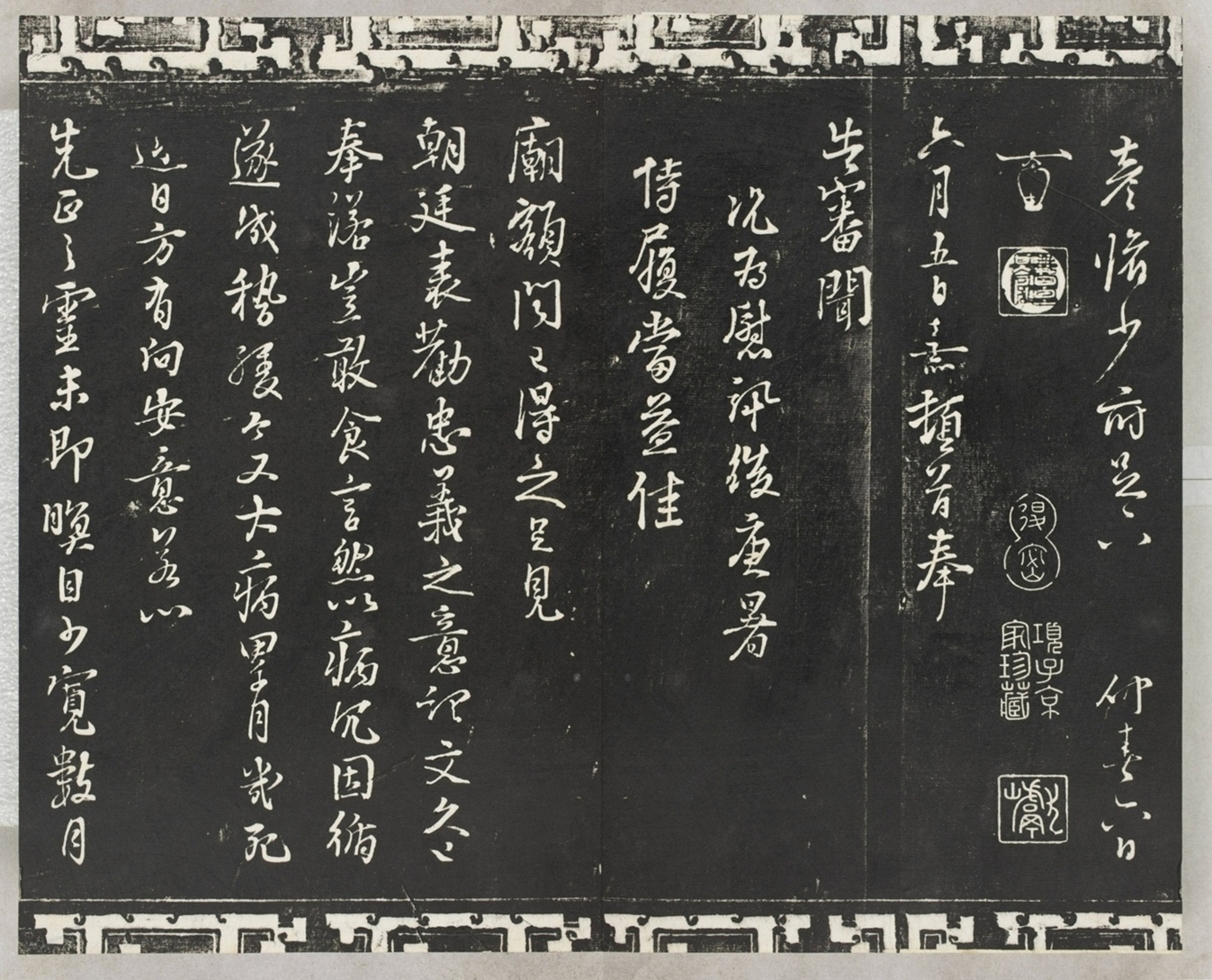 彥脩少府足下 仲春六日
項子京家珍藏
六月五日熹頓首奉
告審聞
況為慰訊後庚暑
侍履當益佳
廟額聞已得之足見
朝廷表勸忠義之意記文久已
奉諾豈敢食言然以病冗因循
遂成稽緩今又大病累月幾死
近日方有向安意若以
先正之靈未即瞑目少寬數月